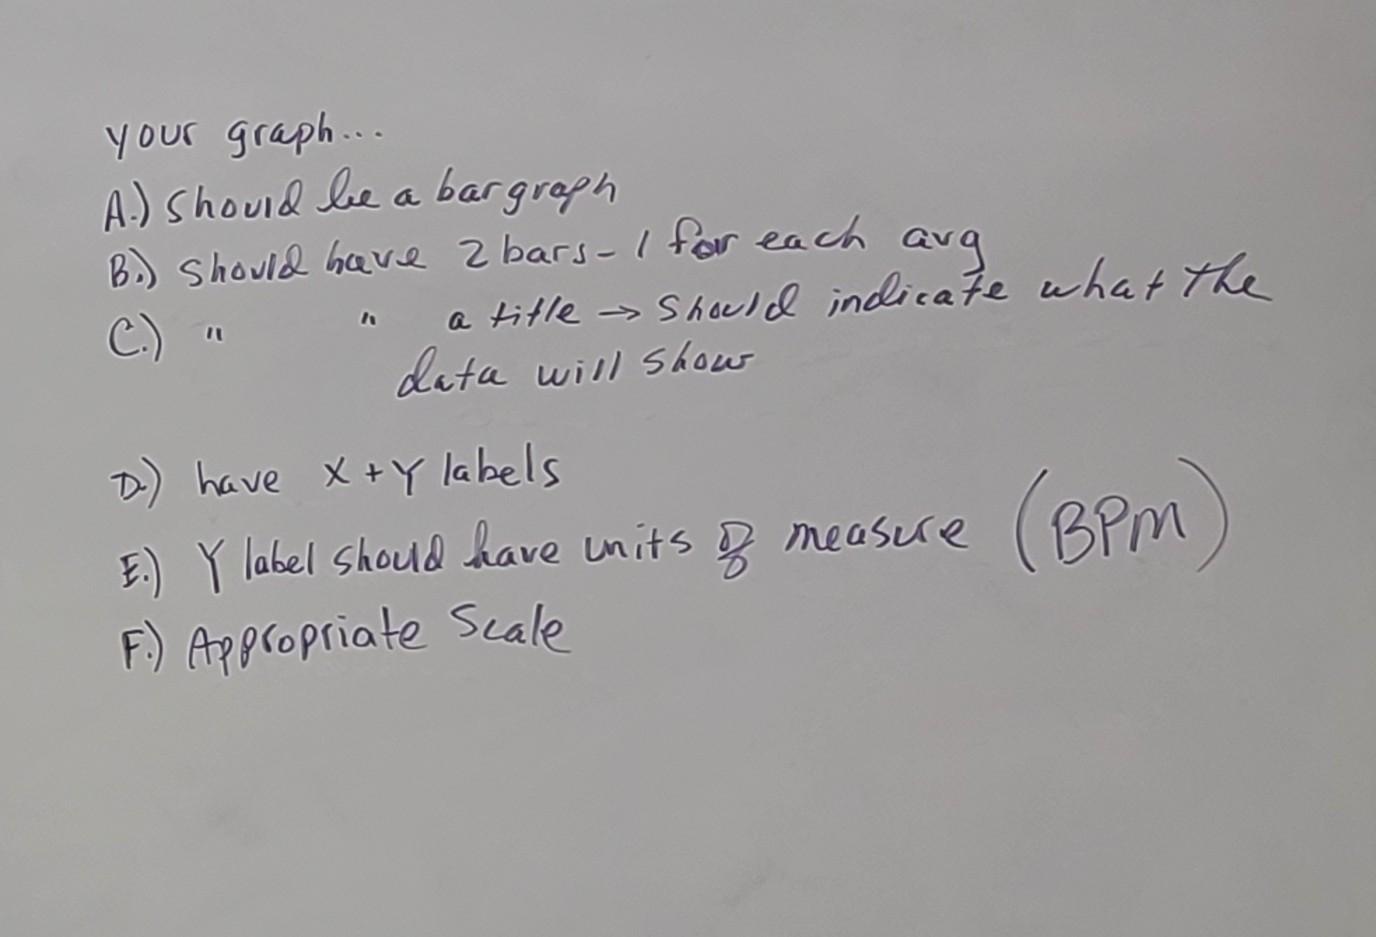 your graph...
A.) Should be a bar graph
B.) should have 2 bars - 1 for each avg
C.) " " a title → should indicate what the
data will show
D.) have X + Y labels
E.) Y label should have units of measure (BPM)
F.) Appropriate Scale